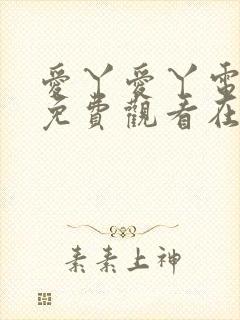 愛丫愛丫電
免費觀看在
素素上神